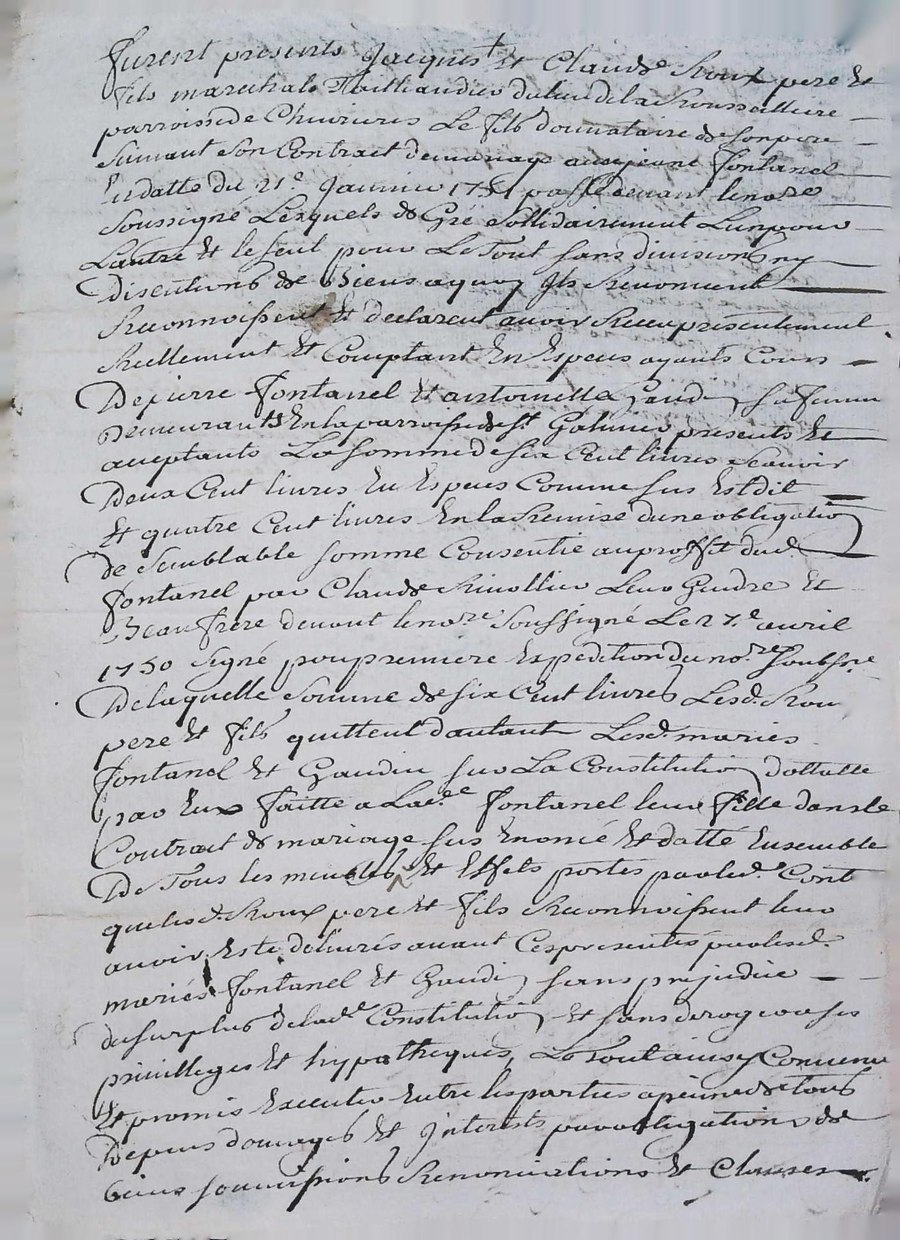 furent presents Jacques et Claude Roux pere et
fils marechals Tailliandiers du lieu de la Roussilliere
parroisse de Chevrieres Le fils donnataire de son pere
suivant son Contract de mariage avec jeanne fontanel
En datte du 21e Janvier 1751 passé devant le nore
soussigné Lesquels de Gré sollidairement L'un pour
L'autre et le seul pour Le Tout sans division ny
discutions de Biens a quoy Ils Renoncent
Reconnoissent et declarent avoir Receu presentement
Reellement et Comptant En Especes ayants Cours
De pierre fontanel et antoinette Gaudin sa femme
Demeurants En la parroisse de st Galmier presents et
acceptants La somme de six Cent livres scavoir
Deux Cent livres En Especes Comme sus Est dit
Et quatre Cent livres En la Remise d'une obligation
de semblable somme Consentie au proffit dud
fontanel par Claude Rivollier Leur Gendre et
Beaufrere devant le nore soussigné Le 27e avril
1750 signé pour premiere Expedition du nore soubsne
De laquelle somme de six Cent livres Lesd. Roux
pere et fils quittent d'autant Lesd. mariés
fontanel et Gaudin sur La Constitution dottalle
par Eux faitte a Lade fontanel leur fille dans le
Contrat de mariage sus Enoncé et datté Ensemble
De Tous les meubles et Effets portés par led. Cont
que lesd. Roux pere et fils Reconnoissent leur
avoir Esté delivrés avant Ces presentes par lesd.
mariés fontanel et Gaudin sans prejudice
du surplus de lade Constitution et sans deroger a ses
privilleges et hypotheques, Le Tout ainsy Convenu
Et promis Executer Entre les parties a peine de tous
Depens domages et Interests par obligations de
biens soumissions Renonciations et Clauses